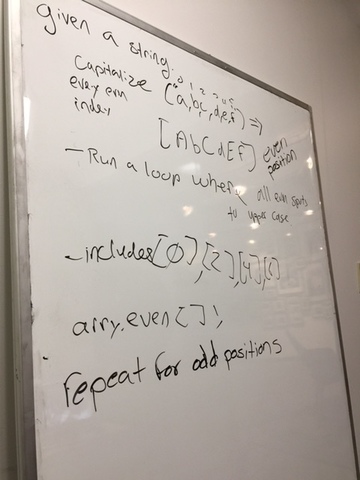 given a string.
0 1 2 3 4 5
Capitalize (a,b,c,d,e,f) =>
every even
index
[AbCdEf] even
position
- Run a loop where all even spots
to upper case
- includes [0], [2], [4], [6]
arry.even[];
repeat for odd positions